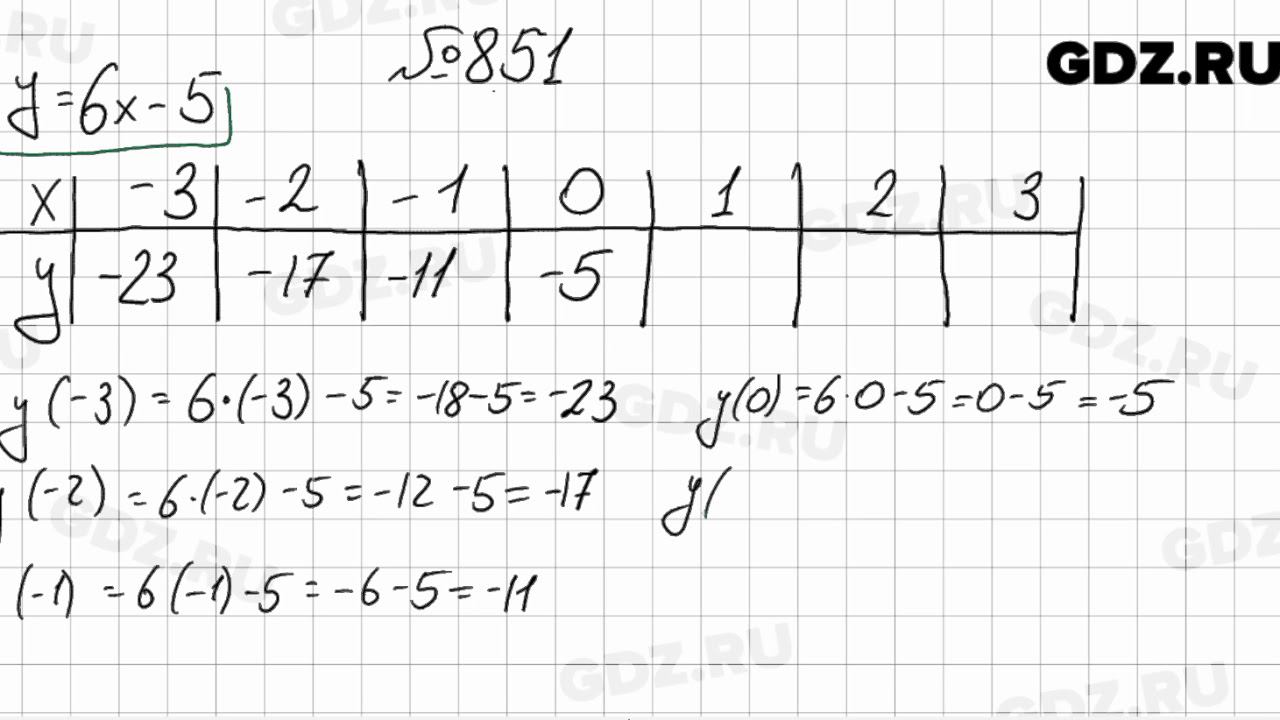 №851
GDZ.RU
y = 6x - 5
x | -3 | -2 | -1 | 0 | 1 | 2 | 3
y | -23 | -17 | -11 | -5
y (-3) = 6·(-3) - 5 = -18 - 5 = -23
y(0) = 6·0 - 5 = 0 - 5 = -5
y (-2) = 6·(-2) - 5 = -12 - 5 = -17
y(
(-1) = 6 (-1) - 5 = -6 - 5 = -11